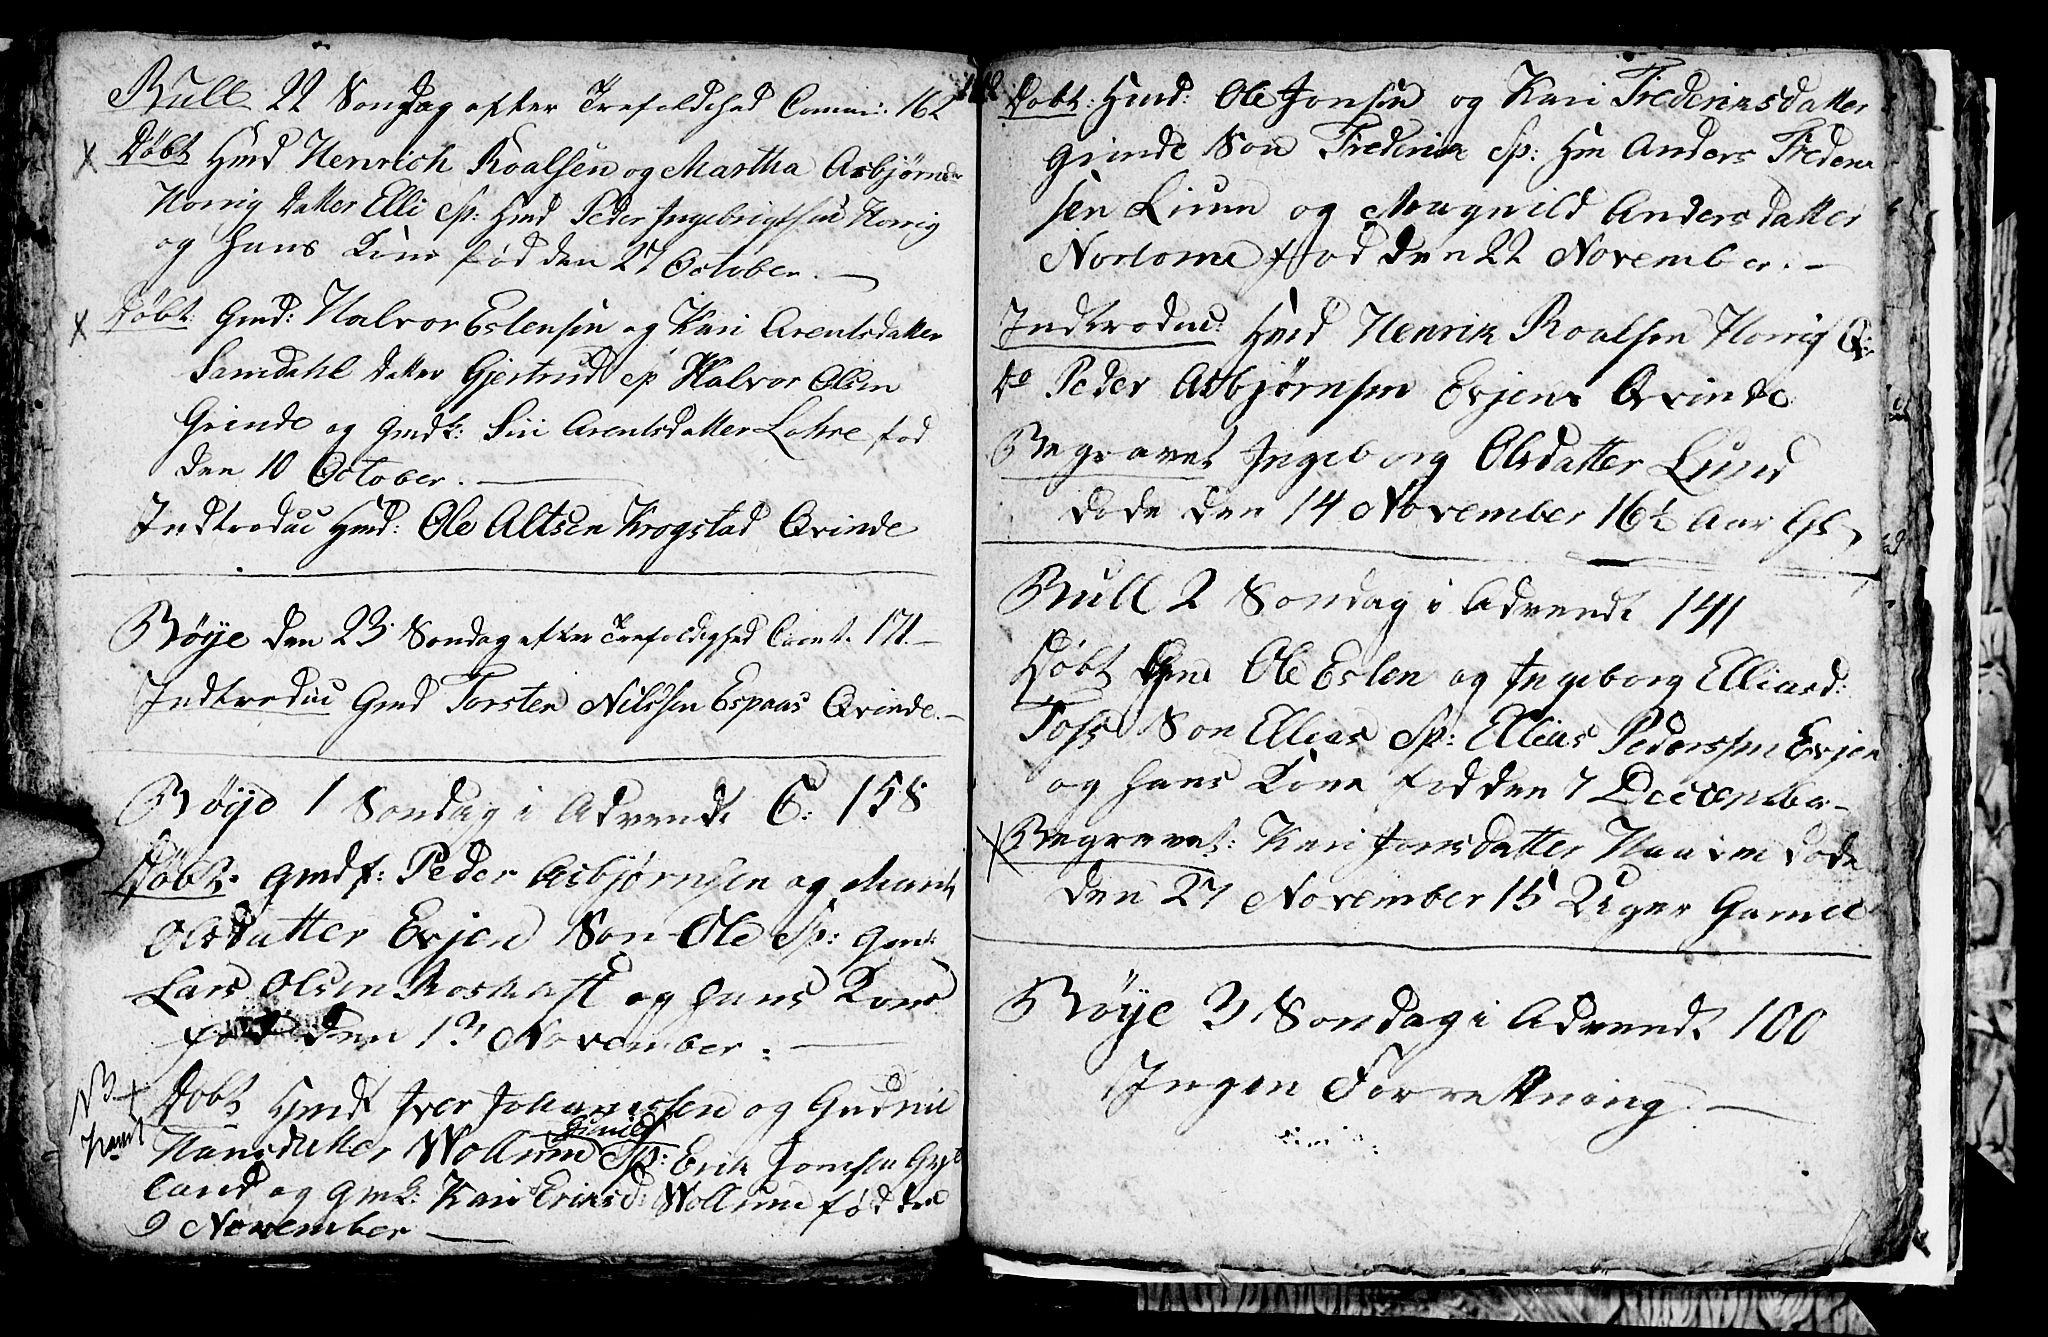 Bull 22 Søndag efter Trefoldighed Comm: 162
x Døbt Hmd Henrich Roalsen og Martha Asbjørnsd
Horrig Datter Elli Sp: Hmd Peder Ingebrigtsen Horrig
og hans Kone fød den 27 October. —
x Døbt: Gmd: Halvor Estensen og Kari Arentsdatter
Samdahl Datter Gjertrud sp Halvor Olsen
Grinde og Gmdk: Siri Arentsdatter Lohre fød
den 10 October. —
Indtroduc Hmd: Ole Altsen Krogstad Qvinde
Bøye den 23 Søndag efter Trefoldighed Comt. 171. —
Indtroduc Gmd Torsten Nilssen Espaas Qvinde. —
Bøye 1 Søndag i Advendt C: 158
Døbt. Gmdf: Peder Asbjørnsen og Marit
Olsdatter Evjen Søn Ole Sp: Gmd:
Lars Olsen Roskaft og hans Kone
fød den 13 November. —
NB + Døbt Hmdf Iver Johannessen og Gudnil
Hansdatter Wollum Gunild Sp: Erik Jonsen
land og Gmk: Kari Eriksd: Wollum fød den
9 November —
Døbt: Hmd: Ole Jonsen og Kari Frederiksdatter
Grinde Søn Frederik Sp: Hm Anders Frederik
sen Lium og Magnild Andersdatter
Norlome fød den 22 November. —
Indtroduc: Hmd Henrik Roalsen Horrig Q:
do Peder Asbjørnsen Evjens Qvinde
Begravet Ingeborg Olsdatter Lund
døde den 14 November 16½ Aar Gl.
Bull 2 Søndag i Advendt 141
Døbt Gmd Ole Esten og Ingeborg Elliasd:
Foss Søn Ellias Sp: Ellias Pederssen Evjen
og hans Kone fød den 7 December —
x Begravet: Kari Jonsdatter Haaven døde
den 27 November 15 Uger Gamel
Bøye 3 Søndag i Advendt 100
Ingen Forrettning. —